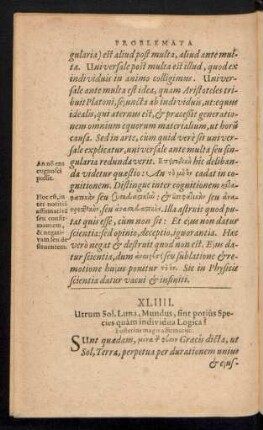 PROBLEMATA
gularia) est aliud post multa, aliud ante mul-
ta. Universale post multa est illud, quod ex
individuis in animo colligimus. Univer-
sale ante multa est idea, quam Aristoteles tri-
buit Platoni, sejuncta ab individuis, ut equus
idealis, qui æternus est, & præcessit generatio-
nem omnium equorum materialium, ut horũ
causa. Sed in arte, cum quid verè sit univer-
sale explicatur, universale ante multa seu sin-
gularia redundaverit. hîc deliban-
da videtur quæstio: An cadat in co-
gnitionem. Distingue inter cognitionem
seu & seu
seu Illa astruit quod pu-
tat quis esse, cum non sit: Et eius non datur
scientia: sed opinio, deceptio, ignorantia. Hæc
verò negat & destruit quod non est. Eius da-
tur scientia, dum seu sublatione & re-
motione huius ponitur Sic in Physicis
scientia datur vacui & infiniti.
An
cognosci
possit.
Hoc est, in-
ter
affirmativã
seu confir-
mantem,
& negati-
vam seu de-
struentem.
XLIIII.
Utrum Sol, Luna, Mundus, sint potius Spe-
cies quàm individua Logica?
SUnt quædam, Græcis dicta, ut
Sol, Terra, perpetua per durationem unius
& eius-